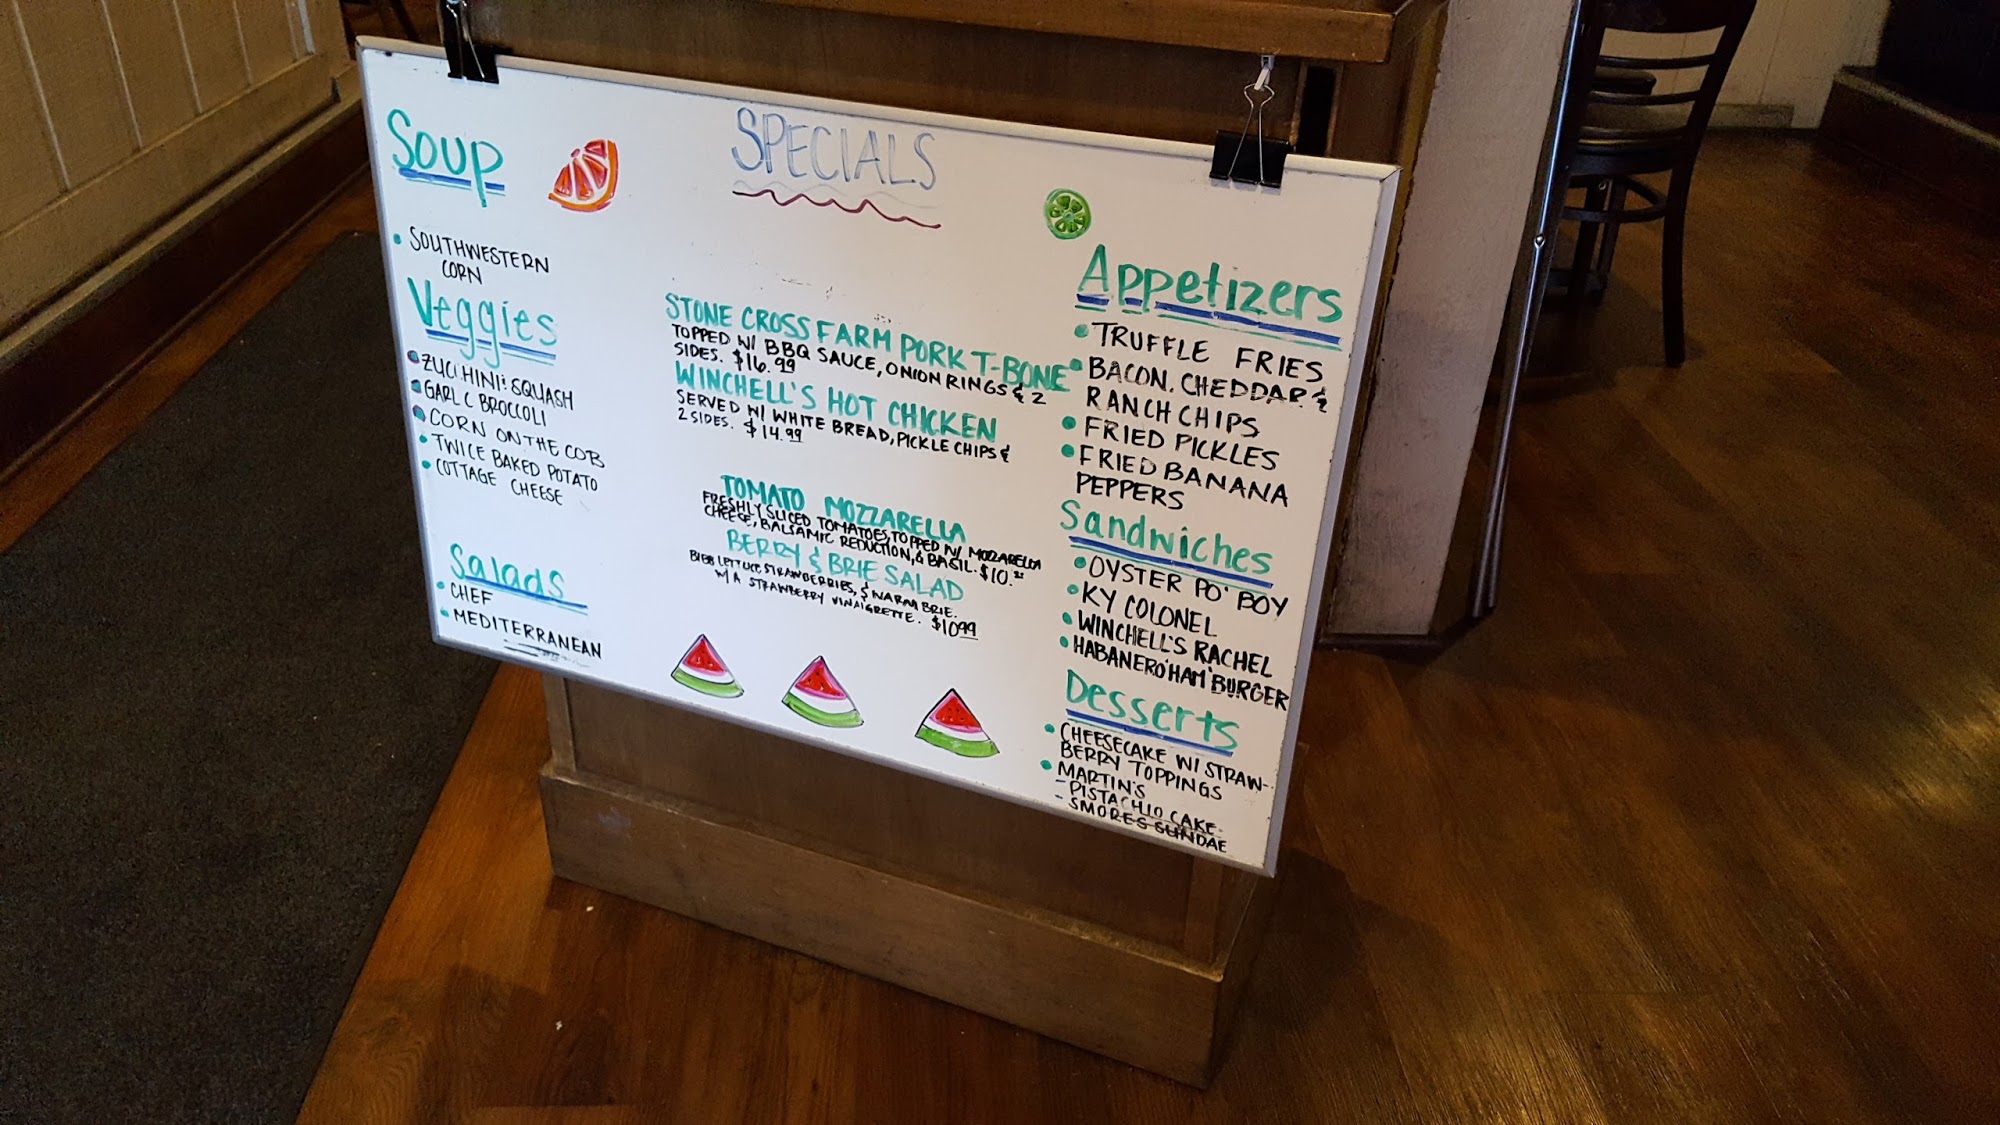 Soup
• SOUTHWESTERN
CORN
Veggies
• ZUCCHINI & SQUASH
• GARLIC BROCCOLI
• CORN ON THE COB
• TWICE BAKED POTATO
• COTTAGE CHEESE
Salads
• CHEF
• MEDITERRANEAN
SPECIALS
STONE CROSS FARM PORK T-BONE
TOPPED W/ BBQ SAUCE, ONION RINGS & 2
SIDES. $16.99
WINCHELL'S HOT CHICKEN
SERVED W/ WHITE BREAD, PICKLE CHIPS &
2 SIDES. $14.99
TOMATO MOZZARELLA
FRESHLY SLICED TOMATOES, TOPPED W/ MOZZARELLA
CHEESE, BALSAMIC REDUCTION, & BASIL. $10.
BERRY & BRIE SALAD
BIBB LETTUCE, STRAWBERRIES, & WARM BRIE.
W/ A STRAWBERRY VINAIGRETTE. $10.99
Appetizers
• TRUFFLE FRIES
• BACON, CHEDDAR &
RANCH CHIPS
• FRIED PICKLES
• FRIED BANANA
PEPPERS
Sandwiches
• OYSTER PO' BOY
• KY COLONEL
• WINCHELL'S RACHEL
• HABANERO "HAM" BURGER
Desserts
• CHEESECAKE W/ STRAW-
BERRY TOPPINGS
• MARTIN'S
- PISTACHIO CAKE
- SMORES SUNDAE